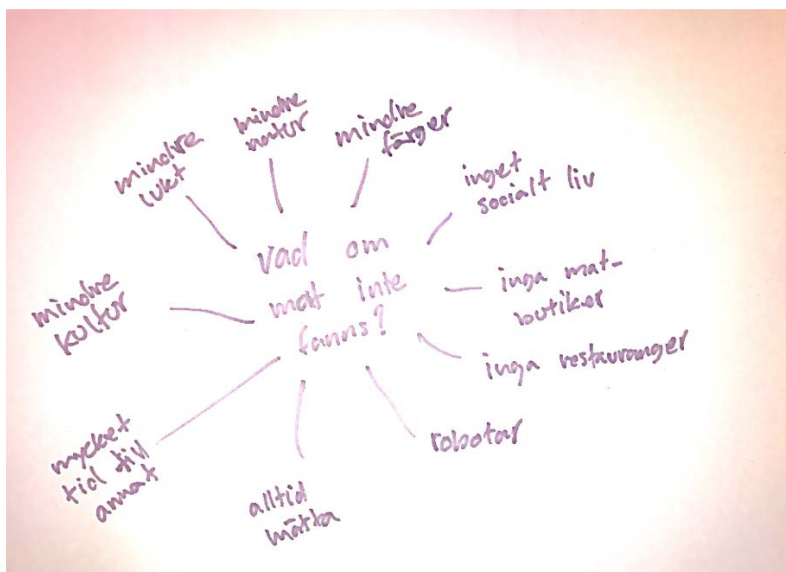 Vad om
mat inte
fanns?
mindre
natur
mindre
färger
inget
socialt liv
inga mat-
butiker
inga restauranger
robotar
alltid
mätta
mycket
tid till
annat
mindre
kultur
mindre
lukt